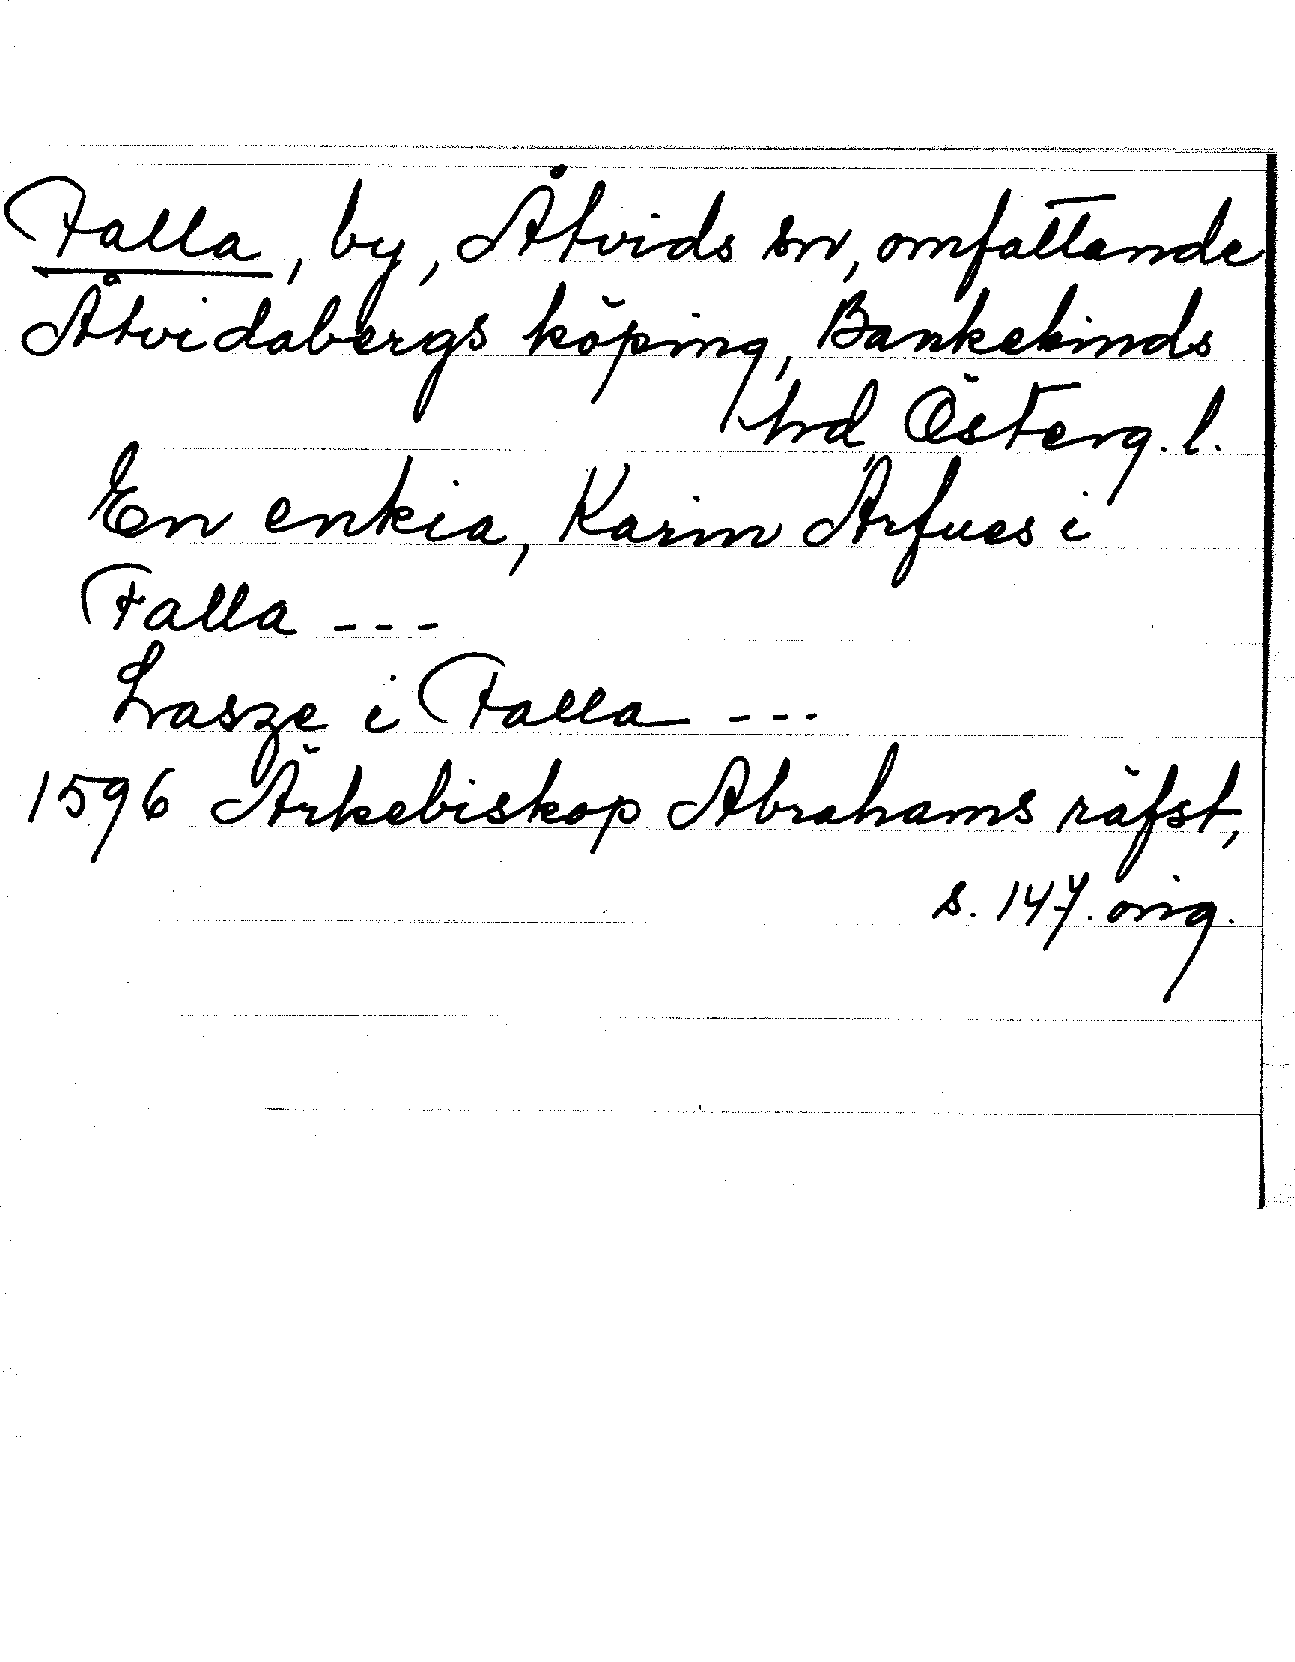 Falla, by, Åtvids sn, omfattande
Åtvidabergs köping, Bankekinds
hrd, Österg.l.
En enkia, Karin Arfues i
Falla ---
Lasze i Falla ---
1596 Ärkebiskop Abrahams räfst,
s. 147. orig.